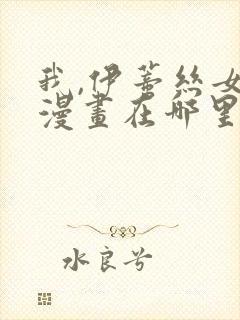 我,伊蒂丝女
漫畫在哪里
水良兮